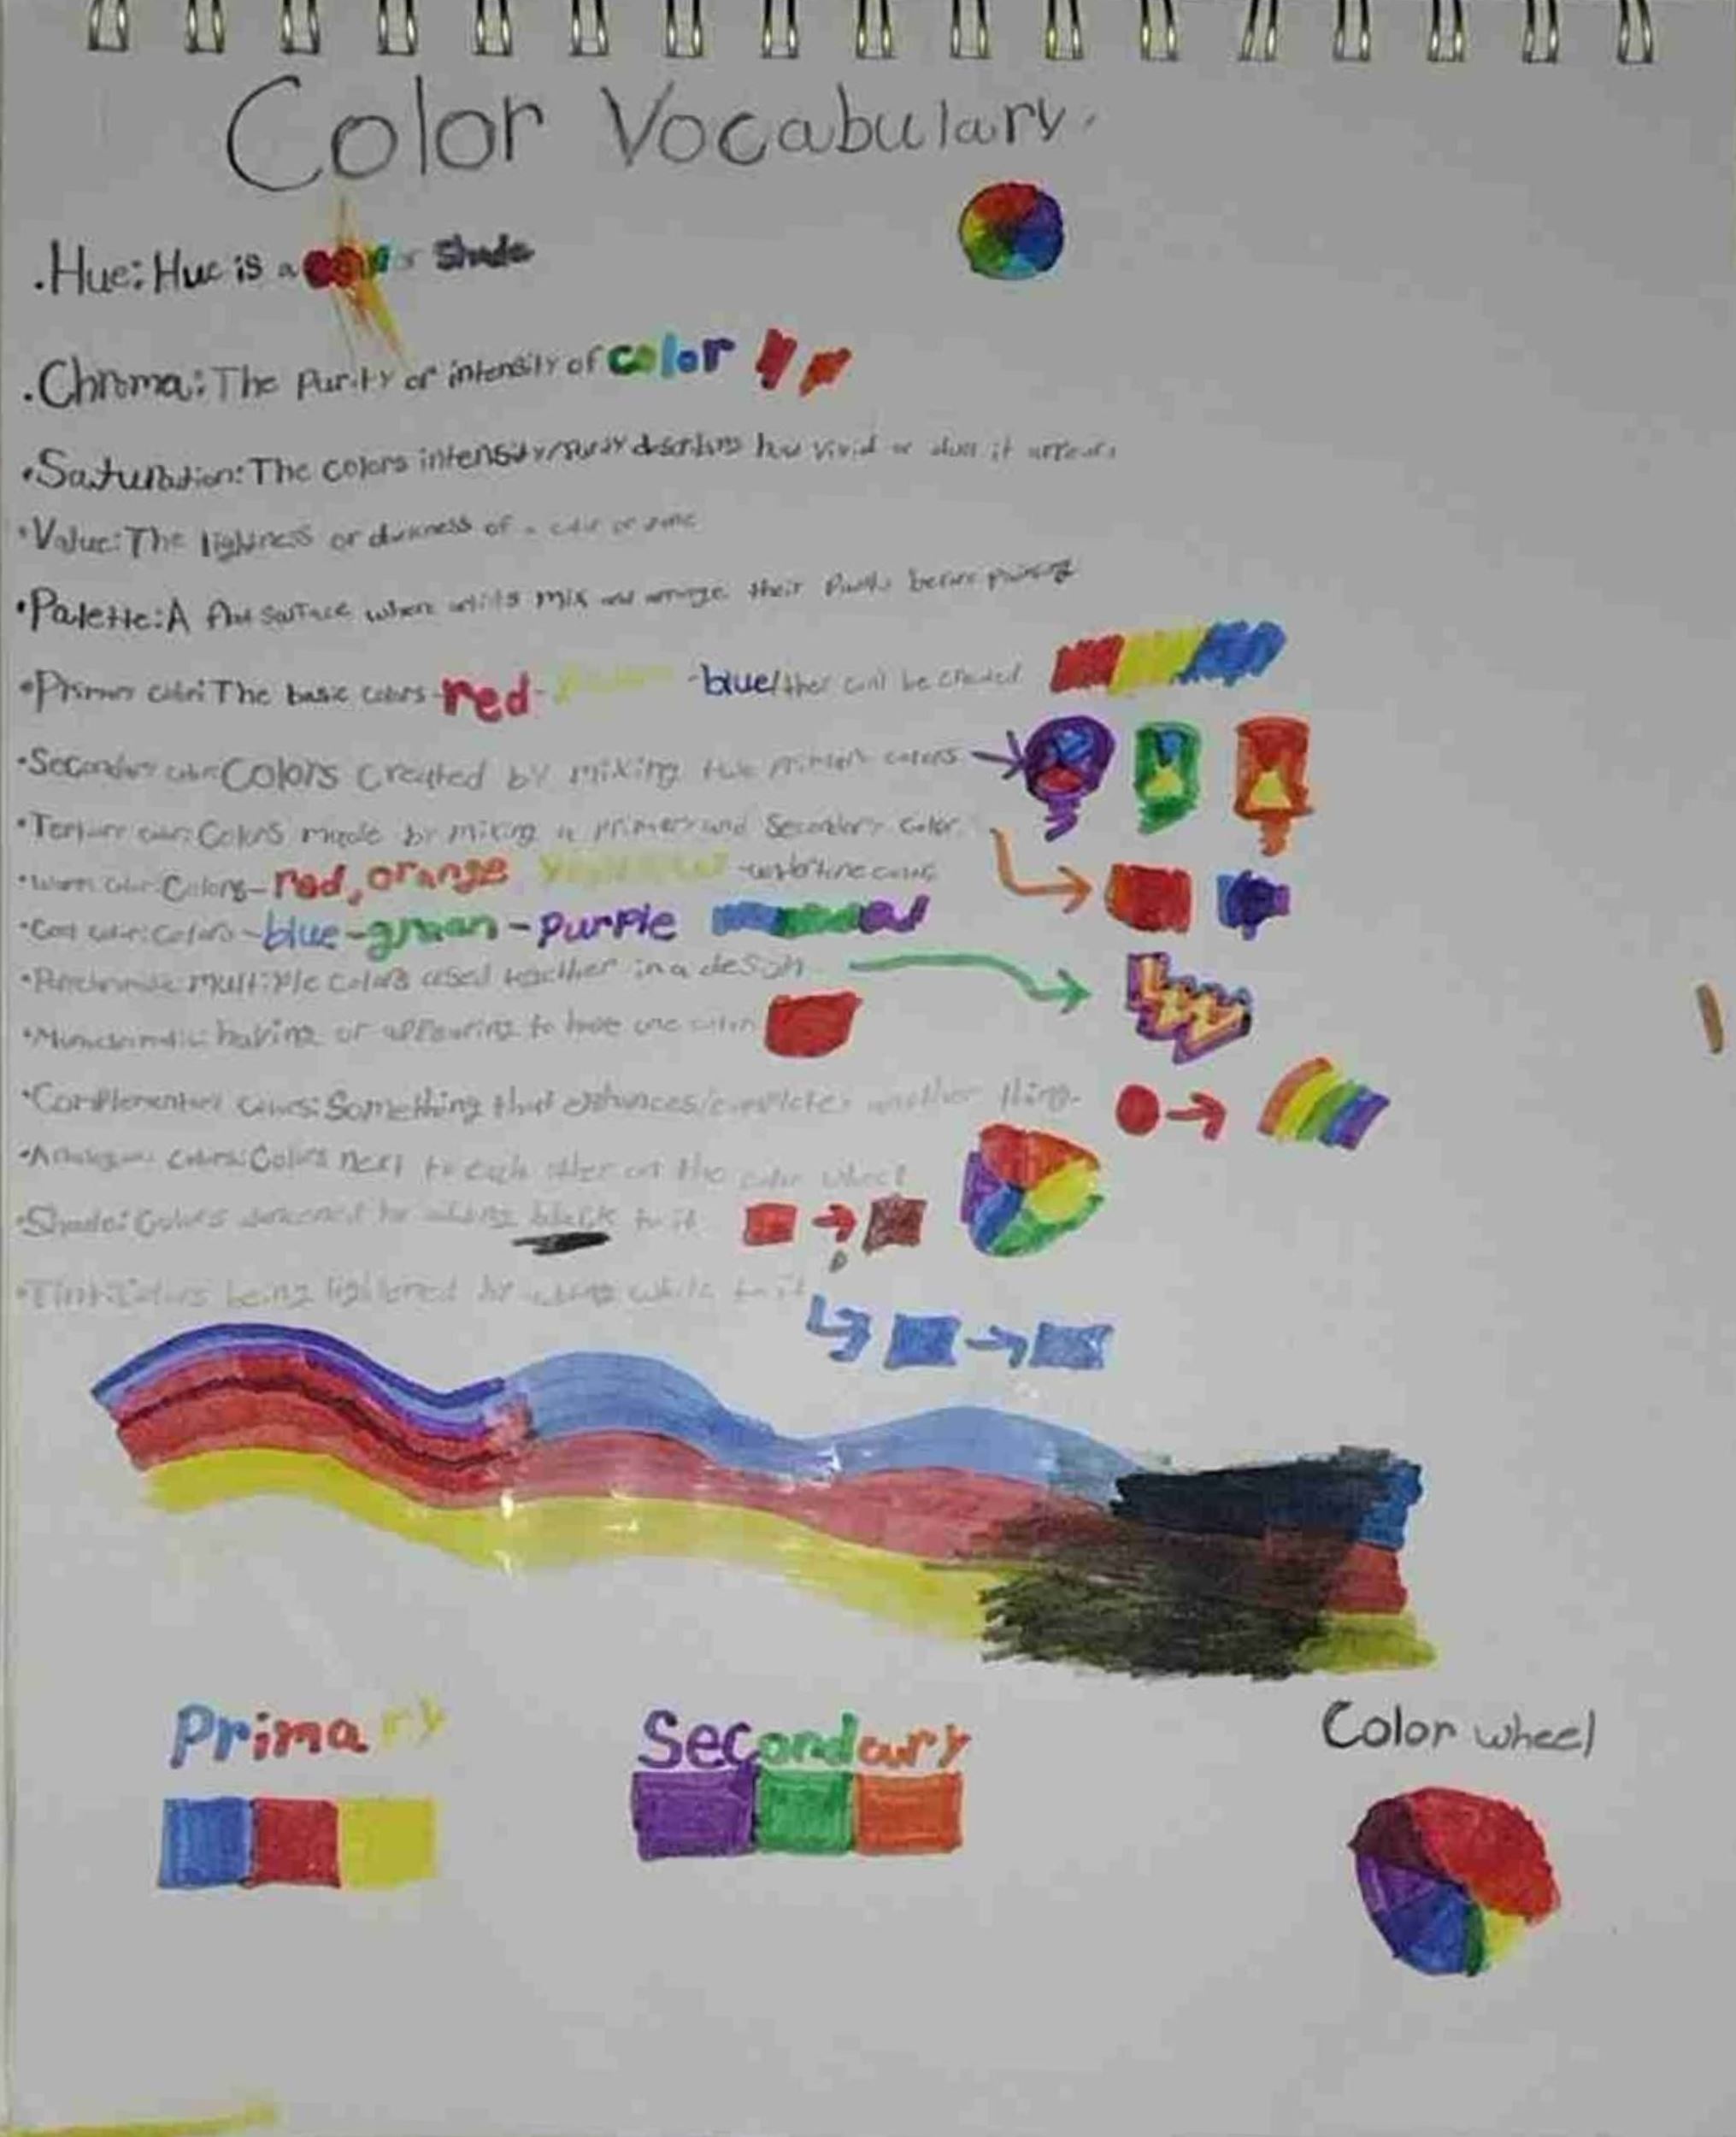 Color Vocabulary.
.Hue: Hue is a color shade
.Chroma: The Purity or intensity of color
•Saturation: The colors intensity/Purity describes how vivid or dull it appears
•Value: The lightness or darkness of a color or
•Palette: A flat surface where artists mix and arrange their Paints before painting
•Primary color: The basic colors-red-yellow-blue/they can't be created
•Secondary color: Colors created by mixing two primary colors
•Tertiary color: Colors made by mixing a primary and Secondary color.
•Warm color: Colors-red, orange yellow
•Cool color: Colors-blue-green-Purple
multiple colors used together in a design
having or appearing to have one color
Something that enhances/completes another thing.
Colors next to each other on the color wheel
•Shade: Colors darkened by adding black to it
•Tint: Colors being lightened by adding white to it
Primary
Secondary
Color wheel